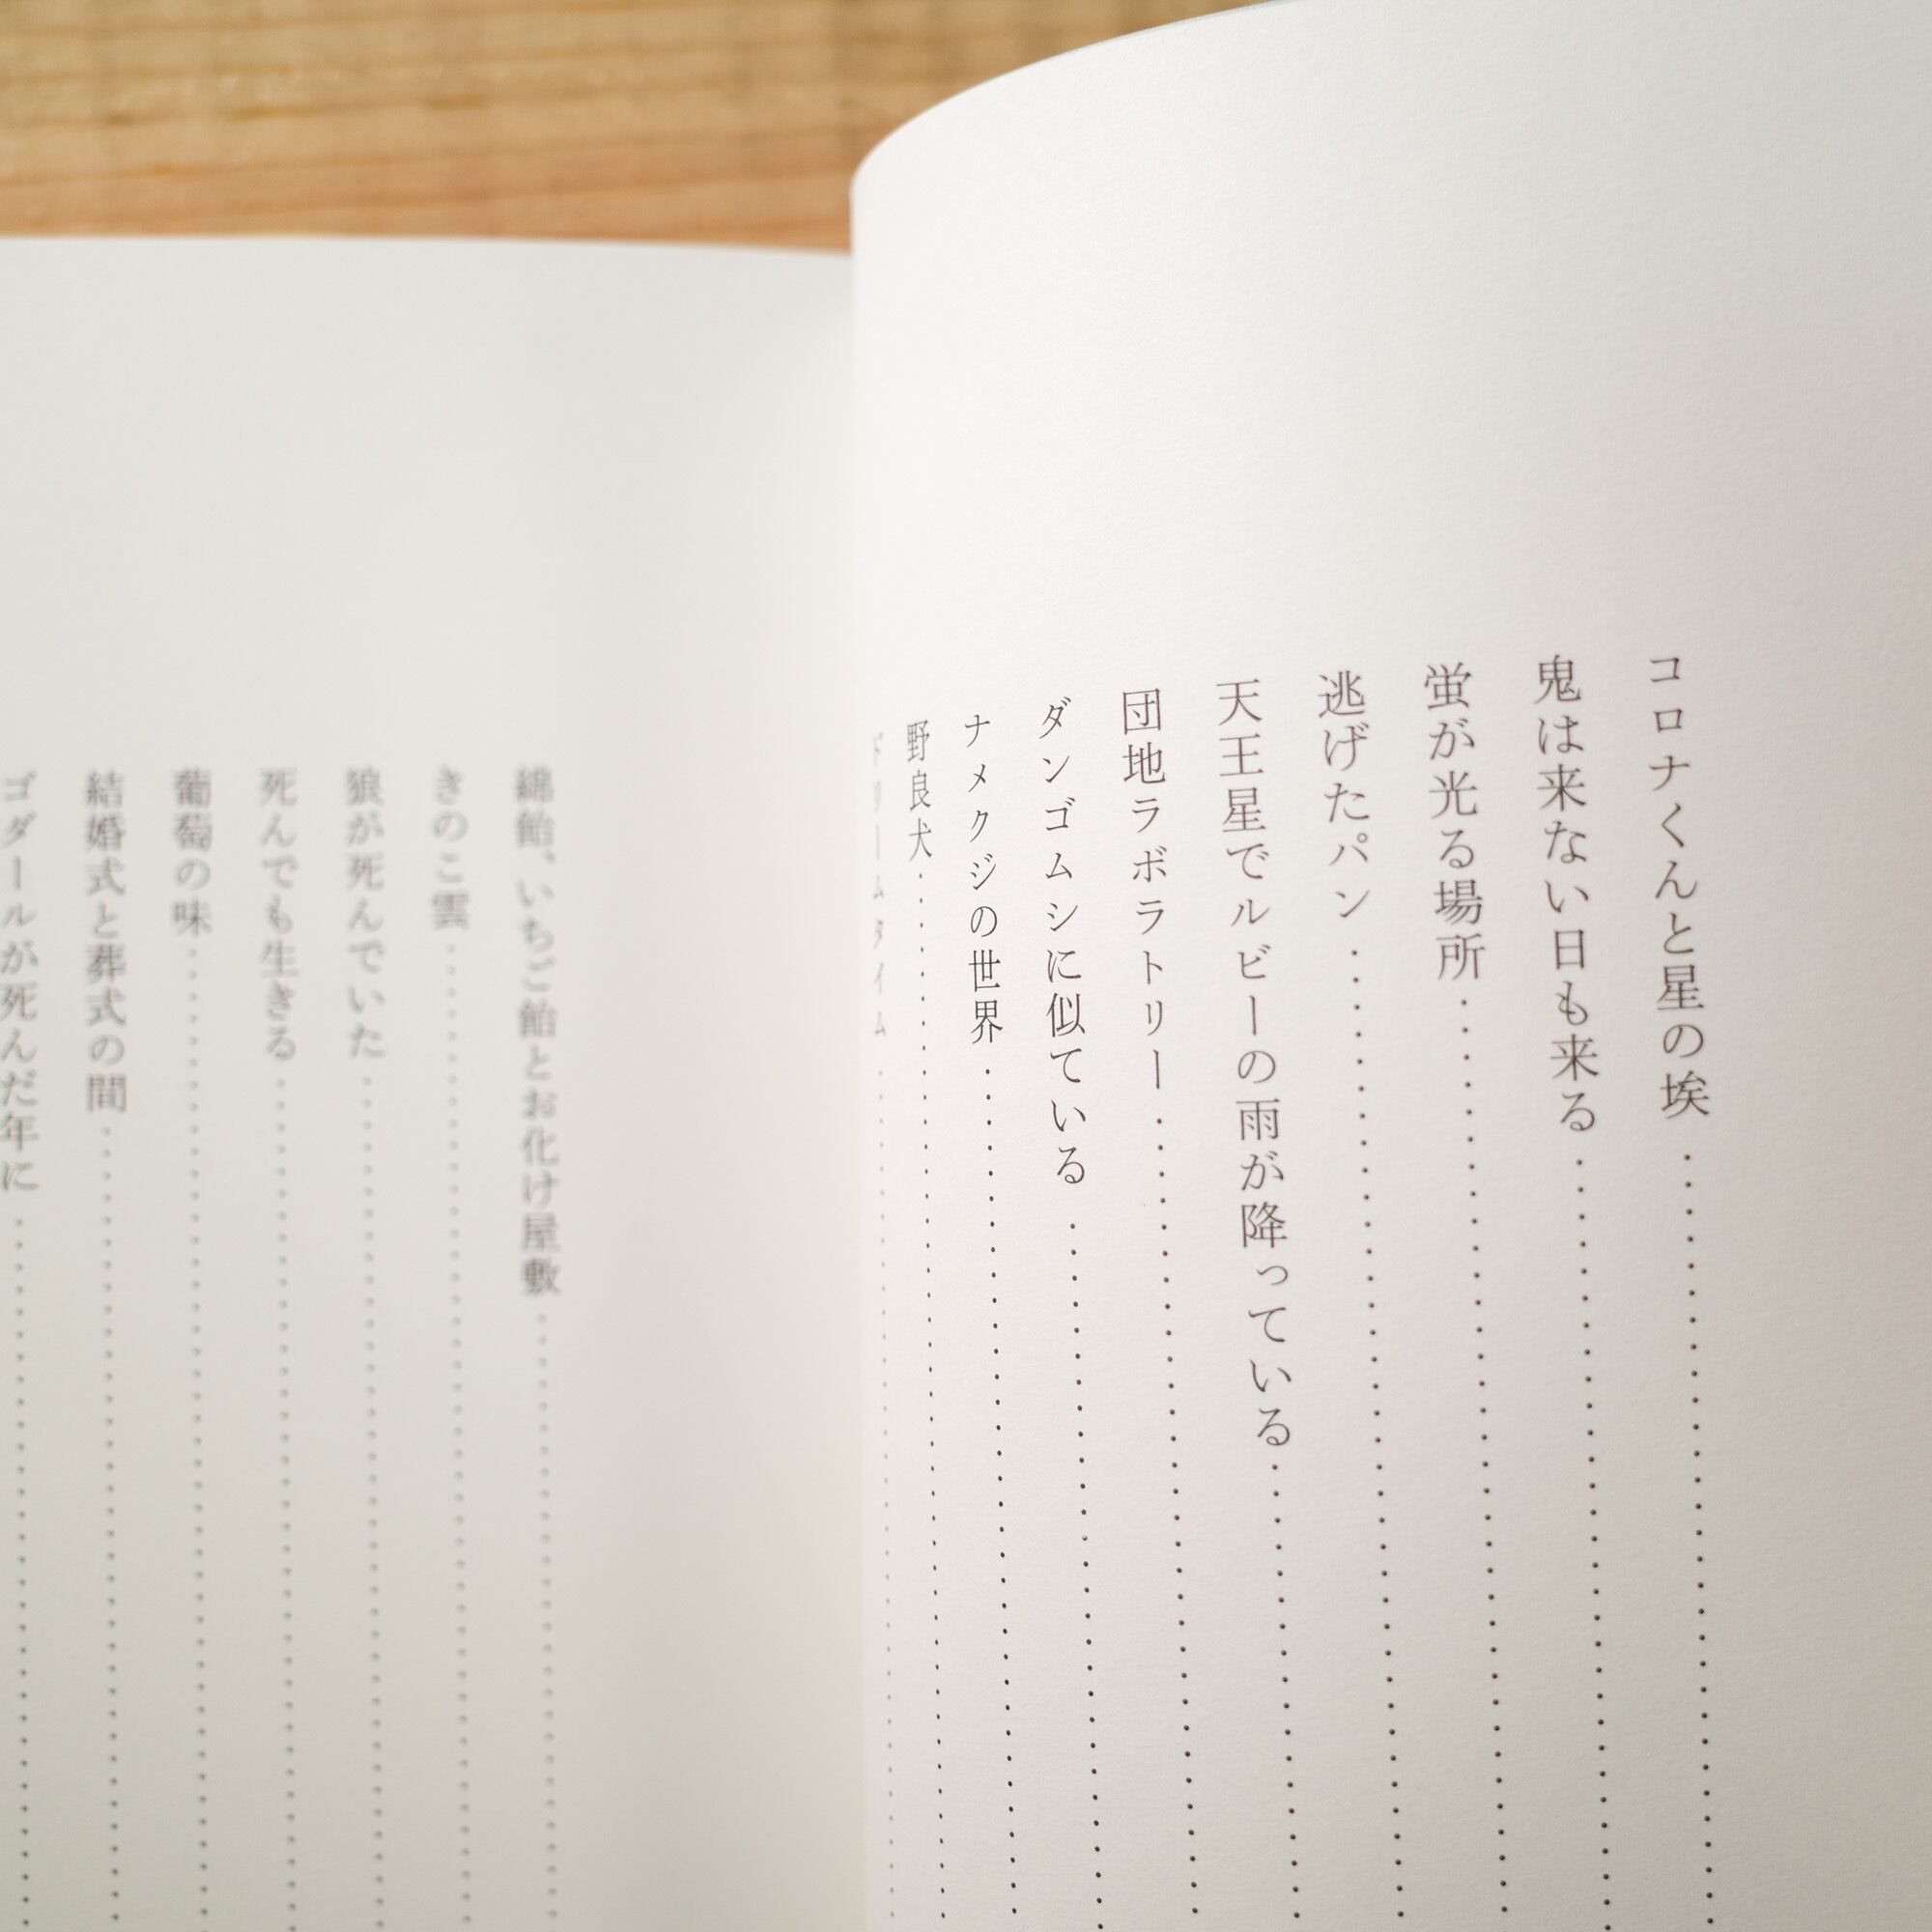 コロナくんと星の埃
鬼は来ない日も来る
蛍が光る場所
逃げたパン
天王星でルビーの雨が降っている
団地ラボラトリー
ダンゴムシに似ている
ナメクジの世界
野良犬
ドリームタイム
綿飴、いちご飴とお化け屋敷
きのこ雲
狼が死んでいた
死んでも生きる
葡萄の味
結婚式と葬式の間
ゴダールが死んだ年に